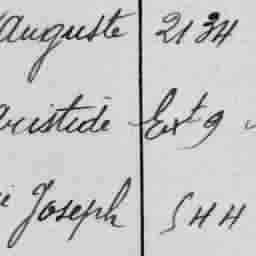 Auguste 2134
Aristide Ext 9
Joseph 544